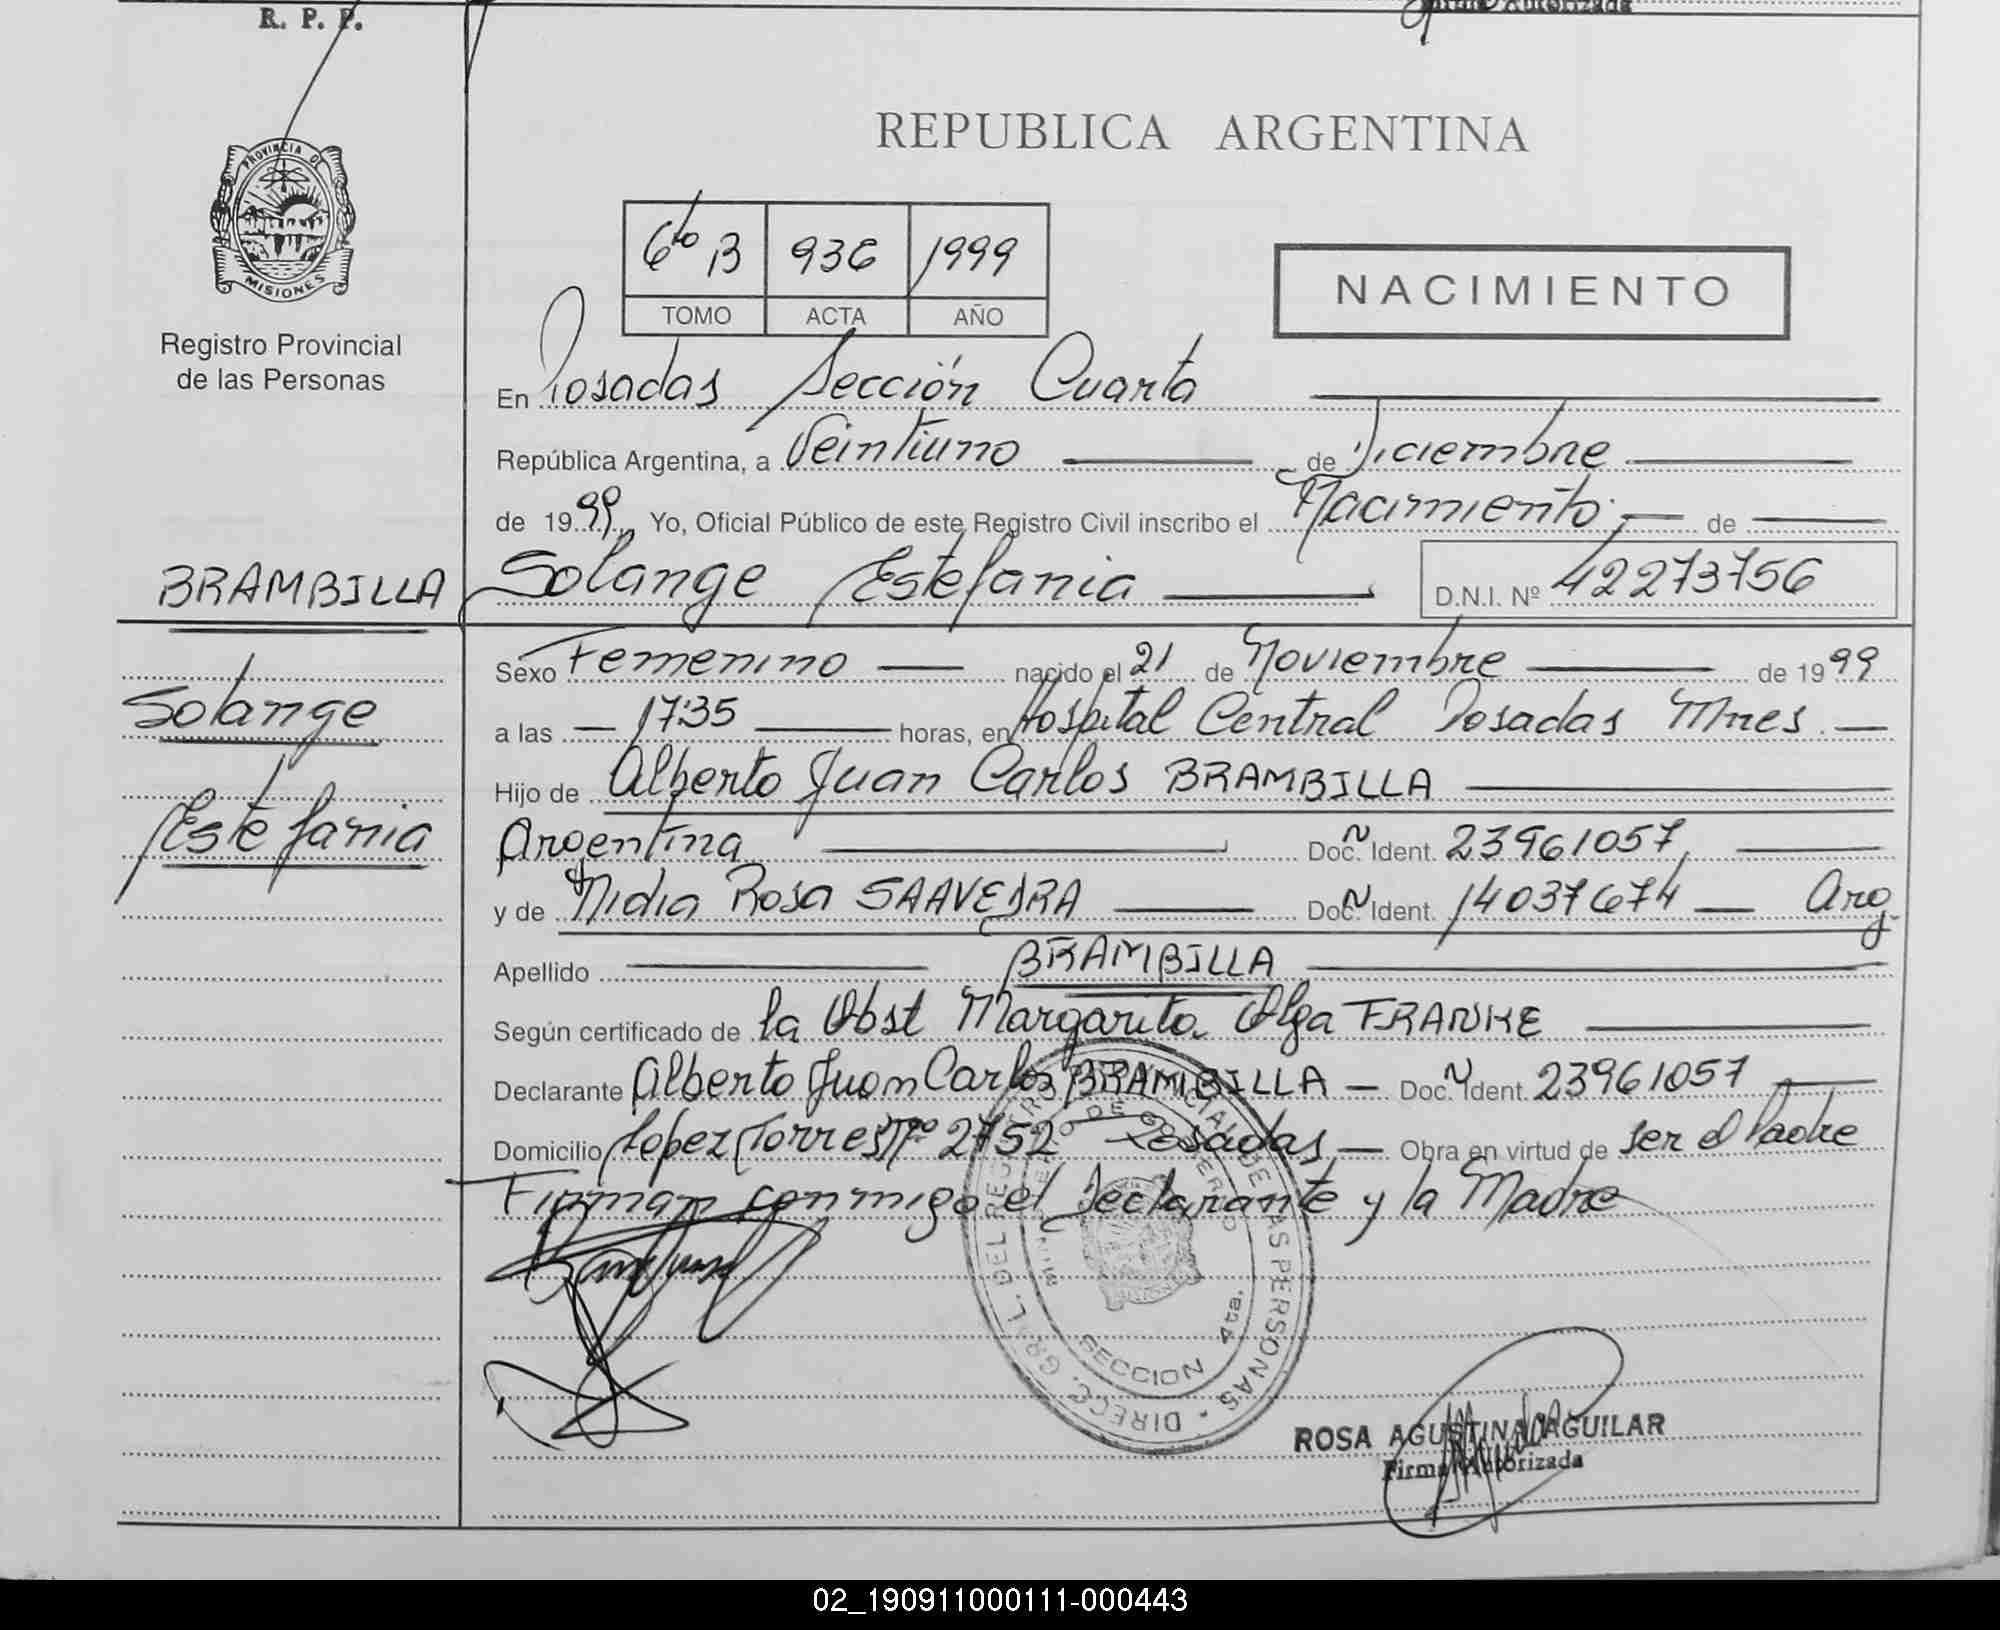 R. P. P.
Firma Autorizada
REPUBLICA ARGENTINA
PROVINCIA DE
MISIONES
Registro Provincial
de las Personas
6to B 936 1999
TOMO ACTA AÑO
NACIMIENTO
En Posadas Sección Cuarta
República Argentina, a Veintiuno de Diciembre
de 1999 Yo, Oficial Público de este Registro Civil inscribo el Nacimiento de
BRAMBILLA Solange Estefania D.N.I. Nº 42273756
Solange
Estefania
Sexo Femenino nacido el 21 de Noviembre de 1999
a las 17:35 horas, en Hospital Central Posadas Mnes.
Hijo de Alberto Juan Carlos BRAMBILLA
Argentina Doc. Ident. 23961057
y de Nidia Rosa SAAVEDRA Doc. Ident. 14037674 Arg
Apellido BRAMBILLA
Según certificado de la Obst Margarita Olga FRANKE
Declarante Alberto Juan Carlos BRAMBILLA Doc. Ident. 23961057
Domicilio Lopez Torres Nº 2752 Posadas Obra en virtud de ser el Padre
Firman conmigo el declarante y la Madre
DIREC. GRAL. DEL REGISTRO PROVINCIAL DE LAS PERSONAS
SECCION 4ta.
ROSA AGUSTINA AGUILAR
Firma Autorizada
02_190911000111-000443